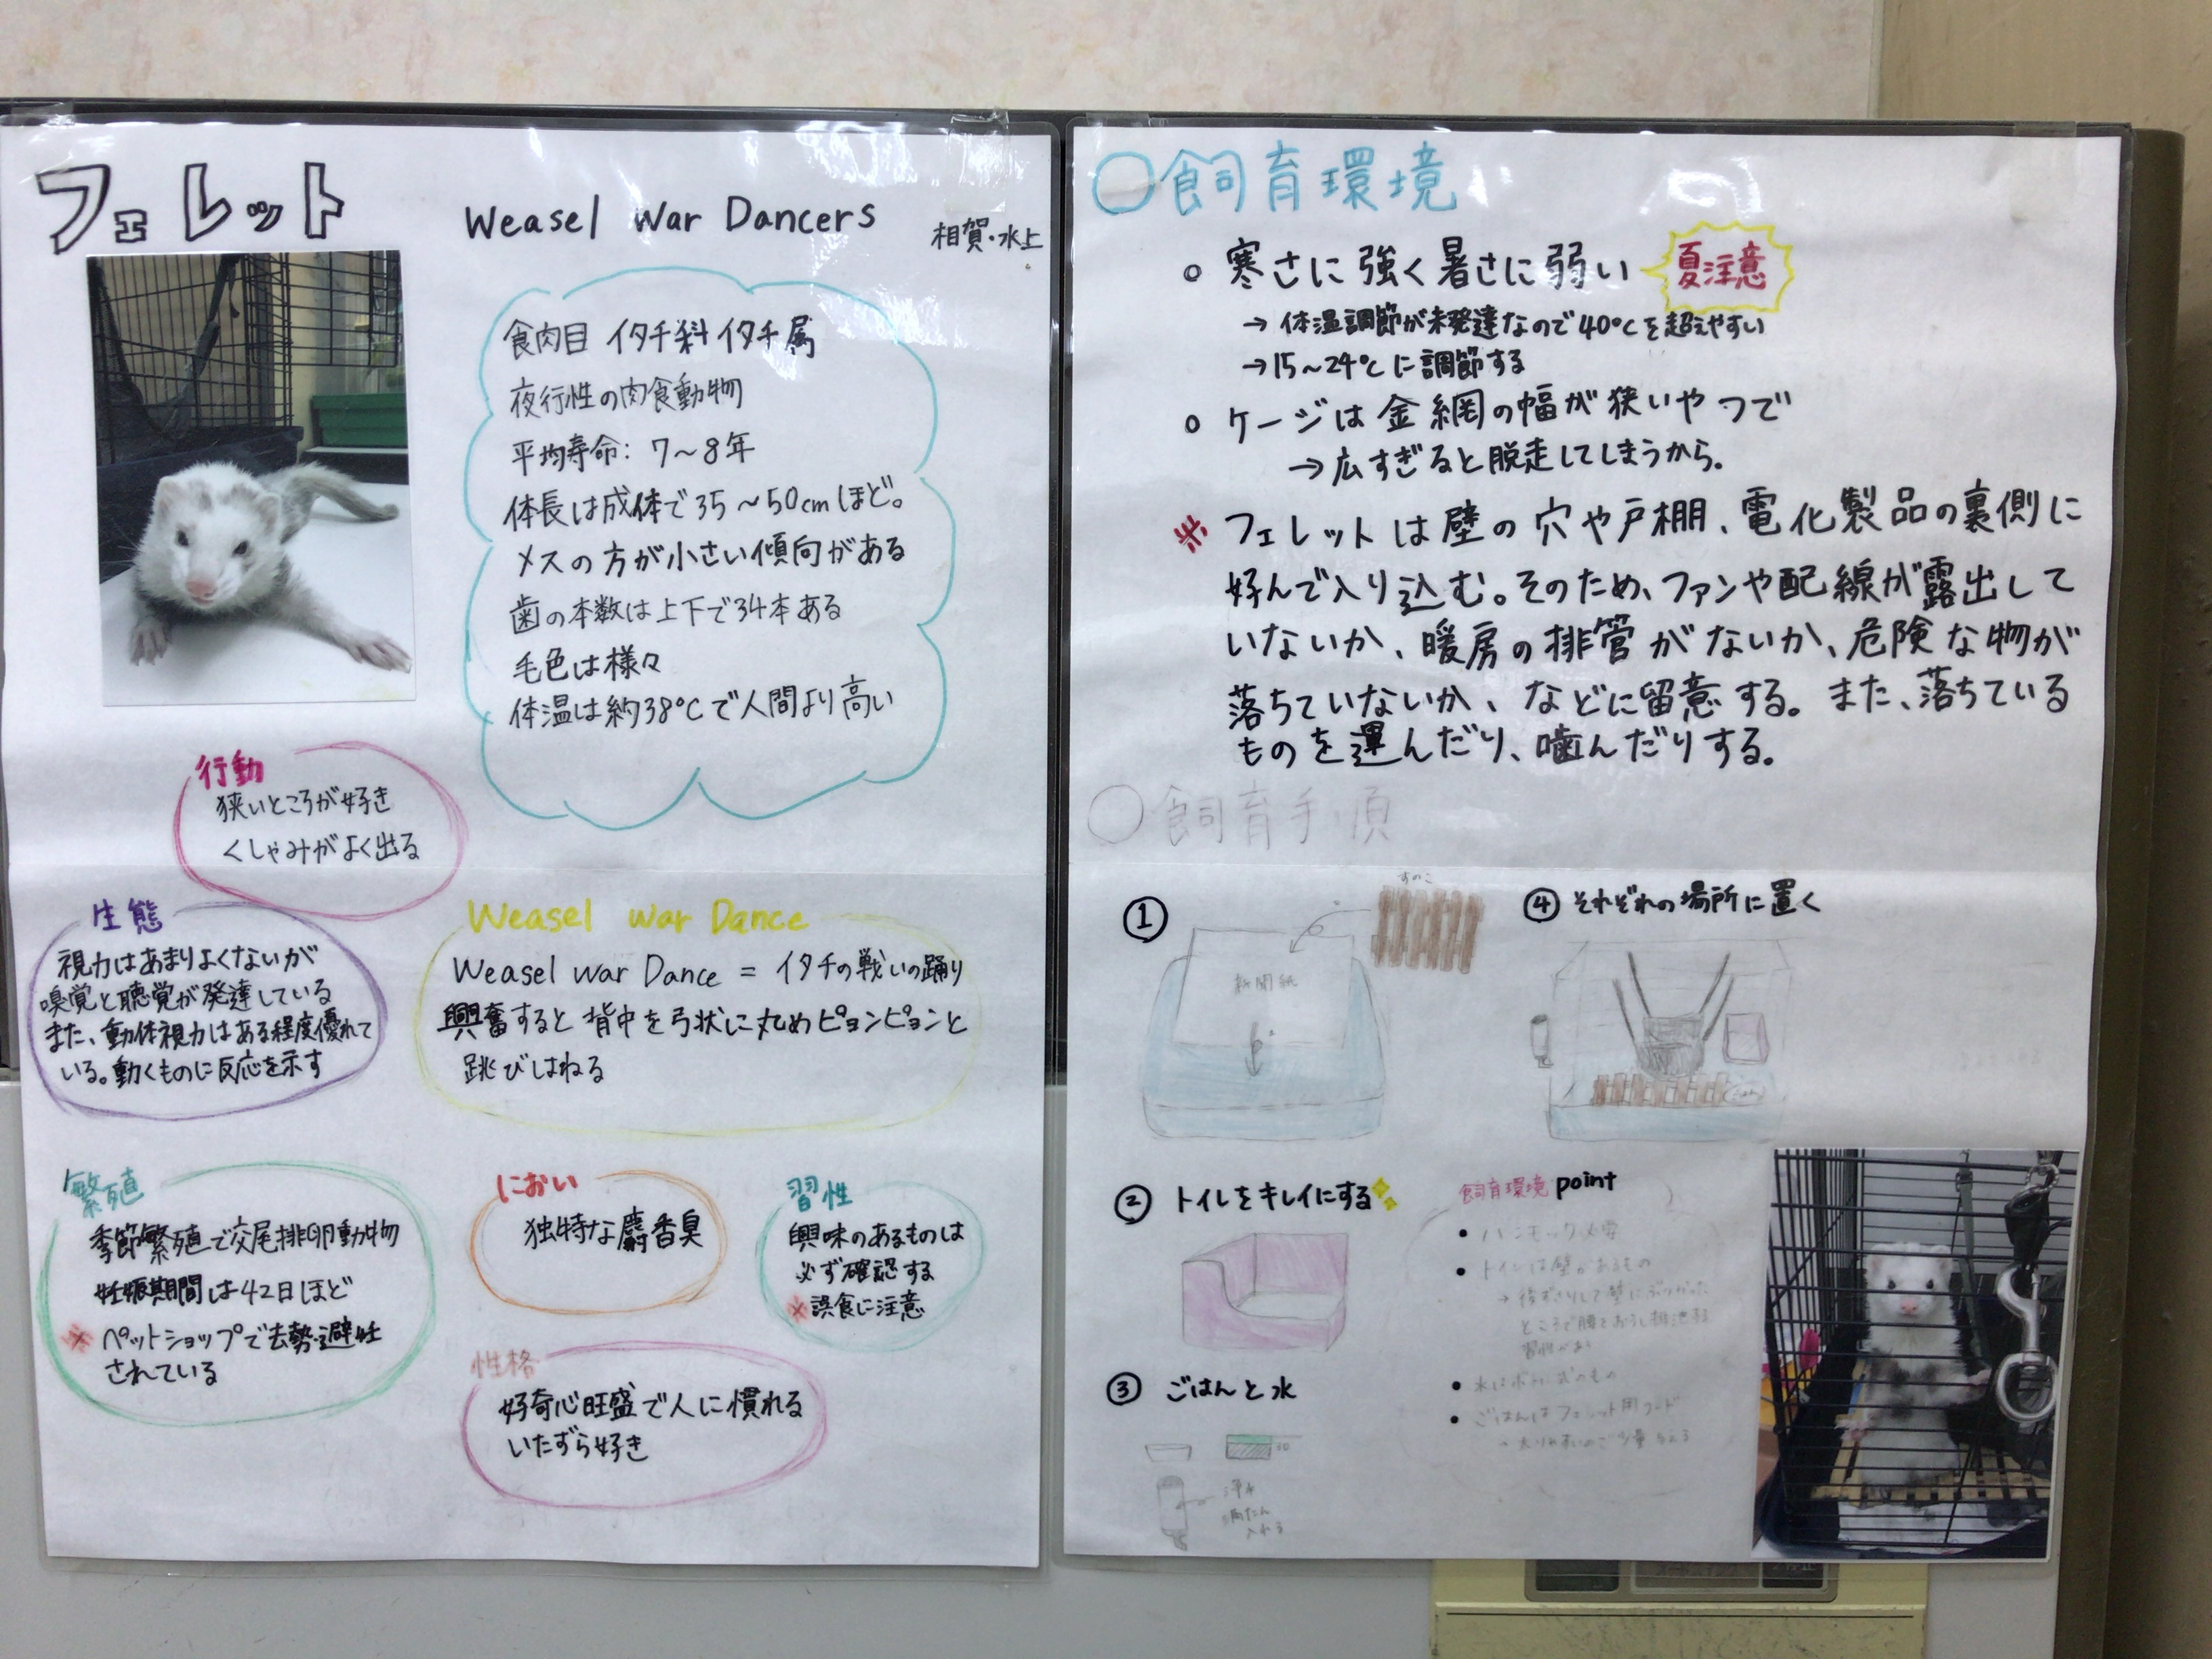 フェレット
Weasel War Dancers
相賀・水上
食肉目 イタチ科 イタチ属
夜行性の肉食動物
平均寿命: 7〜8年
体長は成体で35〜50cmほど。
メスの方が小さい傾向がある
歯の本数は上下で34本ある
毛色は様々
体温は約38℃で人間より高い
行動
狭いところが好き
くしゃみがよく出る
生態
視力はあまりよくないが
嗅覚と聴覚が発達している
また、動体視力はある程度優れて
いる。動くものに反応を示す
Weasel War Dance
Weasel War Dance = イタチの戦いの踊り
興奮すると背中を弓状に丸めピョンピョンと
跳びはねる
繁殖
季節繁殖で交尾排卵動物
妊娠期間は42日ほど
※ペットショップで去勢・避妊
されている
におい
独特な麝香臭
習性
興味のあるものは
必ず確認する
※誤食に注意
性格
好奇心旺盛で人に慣れる
いたずら好き
○飼育環境
○寒さに強く暑さに弱い
夏注意
→体温調節が未発達なので40℃を超えやすい
→15〜24℃に調節する
○ケージは金網の幅が狭いやつで
→広すぎると脱走してしまうから。
※フェレットは壁の穴や戸棚、電化製品の裏側に
好んで入り込む。そのため、ファンや配線が露出して
いないか、暖房の排管がないか、危険な物が
落ちていないか、などに留意する。また、落ちている
ものを運んだり、噛んだりする。
○飼育手順
①
すのこ
新聞紙
②トイレをキレイにする
③ごはんと水
30
④それぞれの場所に置く
ごはん
飼育環境 point
・ハンモック必需
・トイレは壁があるもの
→後ずさりして壁にぶつかった
ところで腰をおろし排泄する
習性がある
・水はボトル式のもの
・ごはんはフェレット用フード